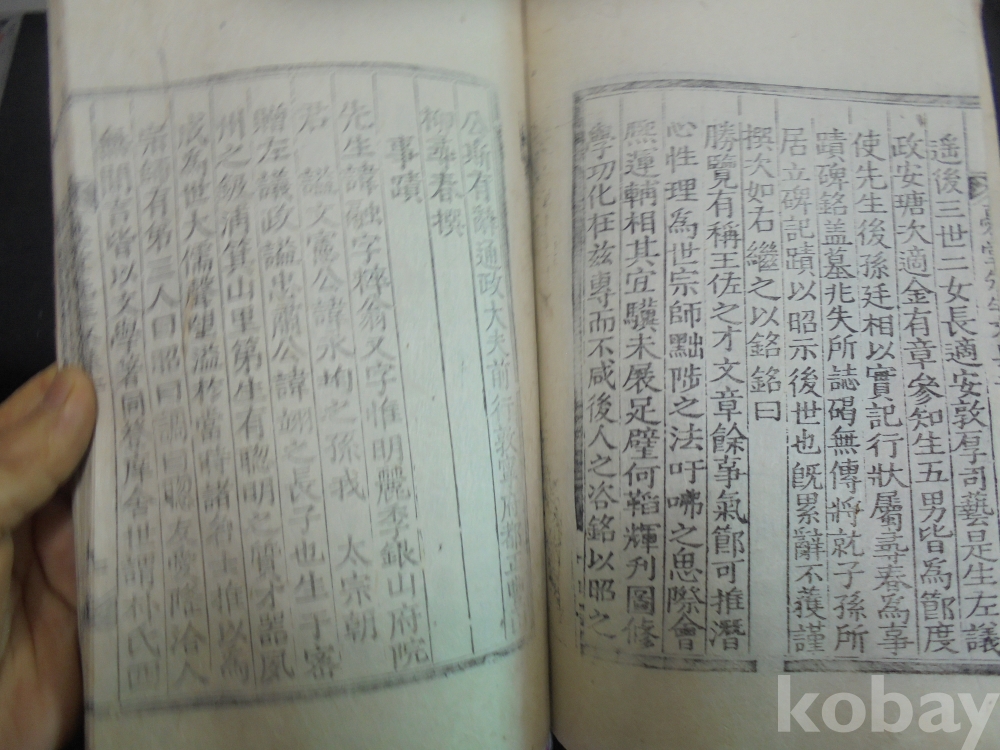 遥後三世二女長適安敦厚司藝是生左議
政安瑭次適金有章參知生五男皆為節度
使先生後孫廷相以實記行狀屬尋春為事
蹟碑銘盖墓非失所誌碣無傳將就子孫所
居立碑記蹟以昭示後世也旣累辭不獲謹
撰次如右繼之以銘銘曰
勝覽有稱王佐之才文章餘事氣節可推潛
心性理為世宗師黜陟之法吁咈之思際會
熙運輔相其宜驥未展足璧何韜輝刋圖修
學功化在茲專而不咸後人之咨銘以昭之
斯有辭通政大夫前行敦寧府都正
柳尋春撰
事蹟
先生諱融字粹翁又字惟明麗季銀山府院
君 謚文憲公諱永均之孫我 太宗朝
贈左議政謚忠肅公諱翊之長子也生于密
州之級浦箕山里第生有聰明之質才器夙
成為世大儒聲望溢於當時諸上推以為
宗師有弟三人曰昭曰調曰聰友愛隆洽人
無間言皆以文學著同登庠舍世謂朴氏四
kobay